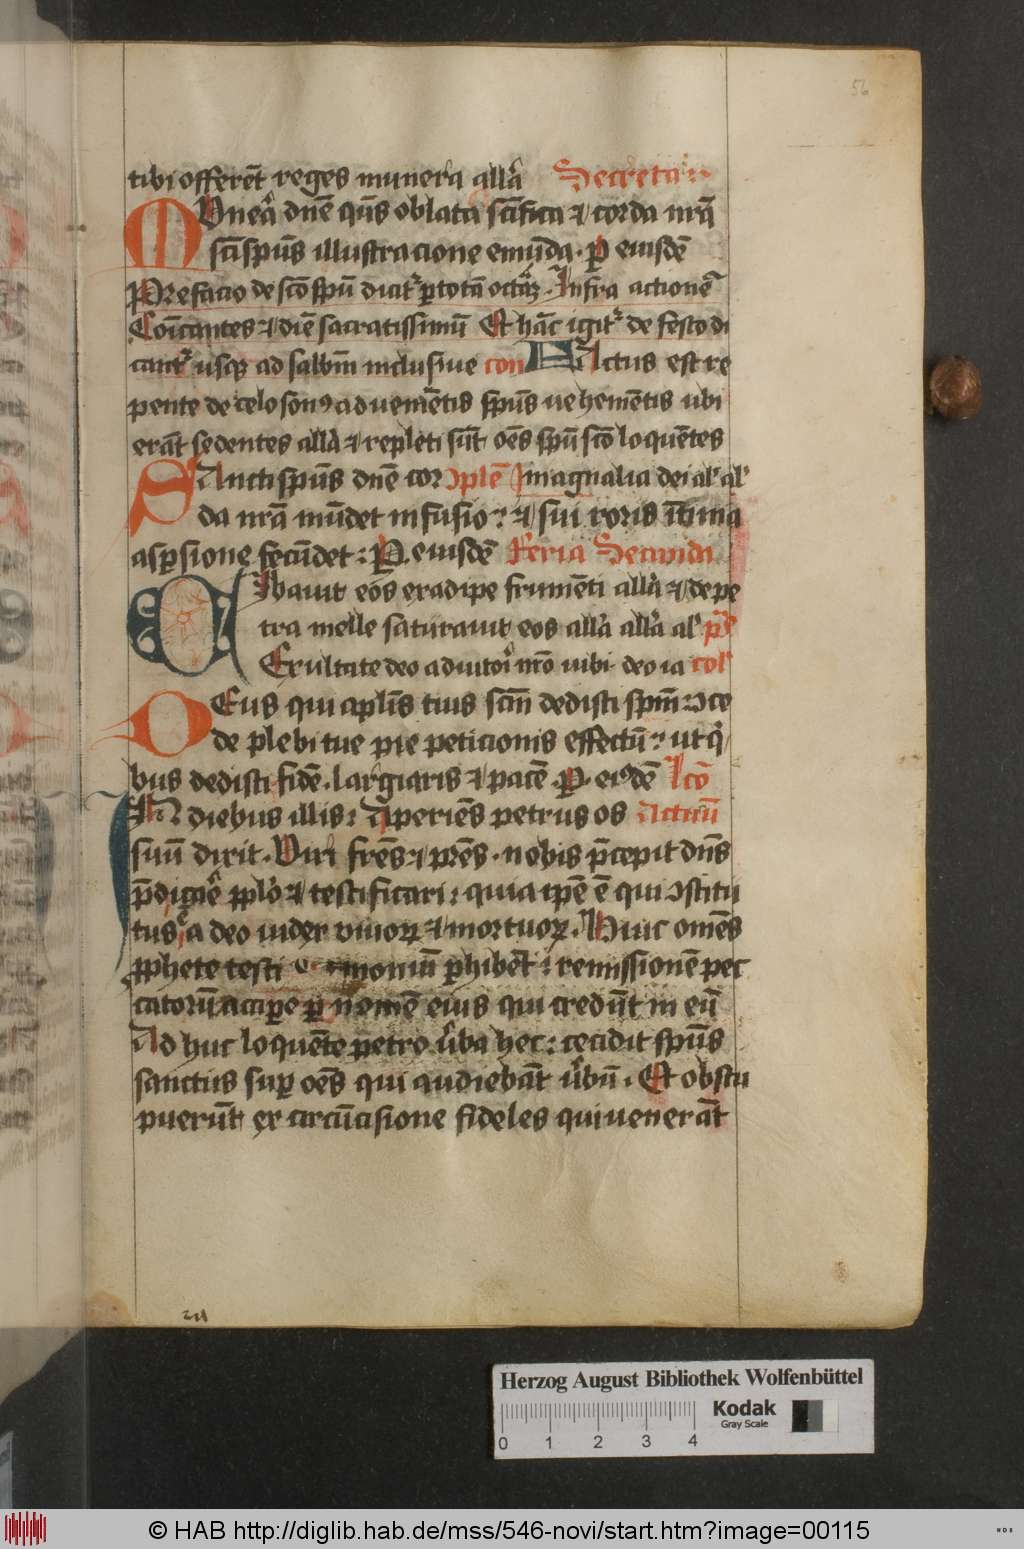 56
tibi offerēt reges munera allā Secreta
MUnea dn̄e qs̄ oblata sc̄ifica ⁊ corda nr̄a
sc̄i sp̄us illustracione emūda. ꝑ eiusdē
Prefacio de sc̄o sp̄u dicit᷑ ꝑ totā octaꝫ. Infra actionē
Cōicantes ⁊ diē sacratissimū Et hāc igit᷑ de festo di
cant᷑ usqꝫ ad sabbm̄ inclusiue con FActus est re
pente de celo sonꝰ adueniētis sp̄us uehemētis ubi
erāt sedentes allā ⁊ repleti sūt oēs sp̄u sc̄o loquētes
SAncti sp̄us dn̄e cor ↄplē magnalia dei al' al'
da nr̄a mūdet infusio: ⁊ sui roris ītima
aspersione fecūdet: P. eiusdē Feria Secunda
CIbauit eos ex adipe frumēti allā ⁊ de pe
tra melle saturauit eos allā allā al' ps̄
Exultate deo adiutori nr̄o iubi deo ia col'
DEus qui apl̄is tuis sc̄m dedisti spm̄: ↄce
de plebi tue pie peticionis effectū: ut q'
bus dedisti fidē. largiaris ⁊ pacē. P. eiꝰdē lcō
IN diebus illis: Aperiēs petrus os Actuū
suū dixit. Uiri fr̄es ⁊ pr̄es. nobis p̄cepit dn̄s
p̄dicare ppl̄o ⁊ testificari: quia ip̄e ē qui ↄstitu
tus ē a deo iudex viuoꝝ ⁊ mortuoꝝ. Huic omēs
ꝓphete testi moniū ꝑhibēt: remissionē pec
catorū accipe ꝑ nomē eius qui credūt in eū
Ad huc loquēte petro ūba hec: cecidit sp̄us
sanctus suꝑ oēs qui audiebāt ūbū. Et obstu
puerūt ex circūcisione fideles qui uenerāt
Herzog August Bibliothek Wolfenbüttel
Kodak
Gray Scale
0 1 2 3 4
© HAB http://diglib.hab.de/mss/546-novi/start.htm?image=00115